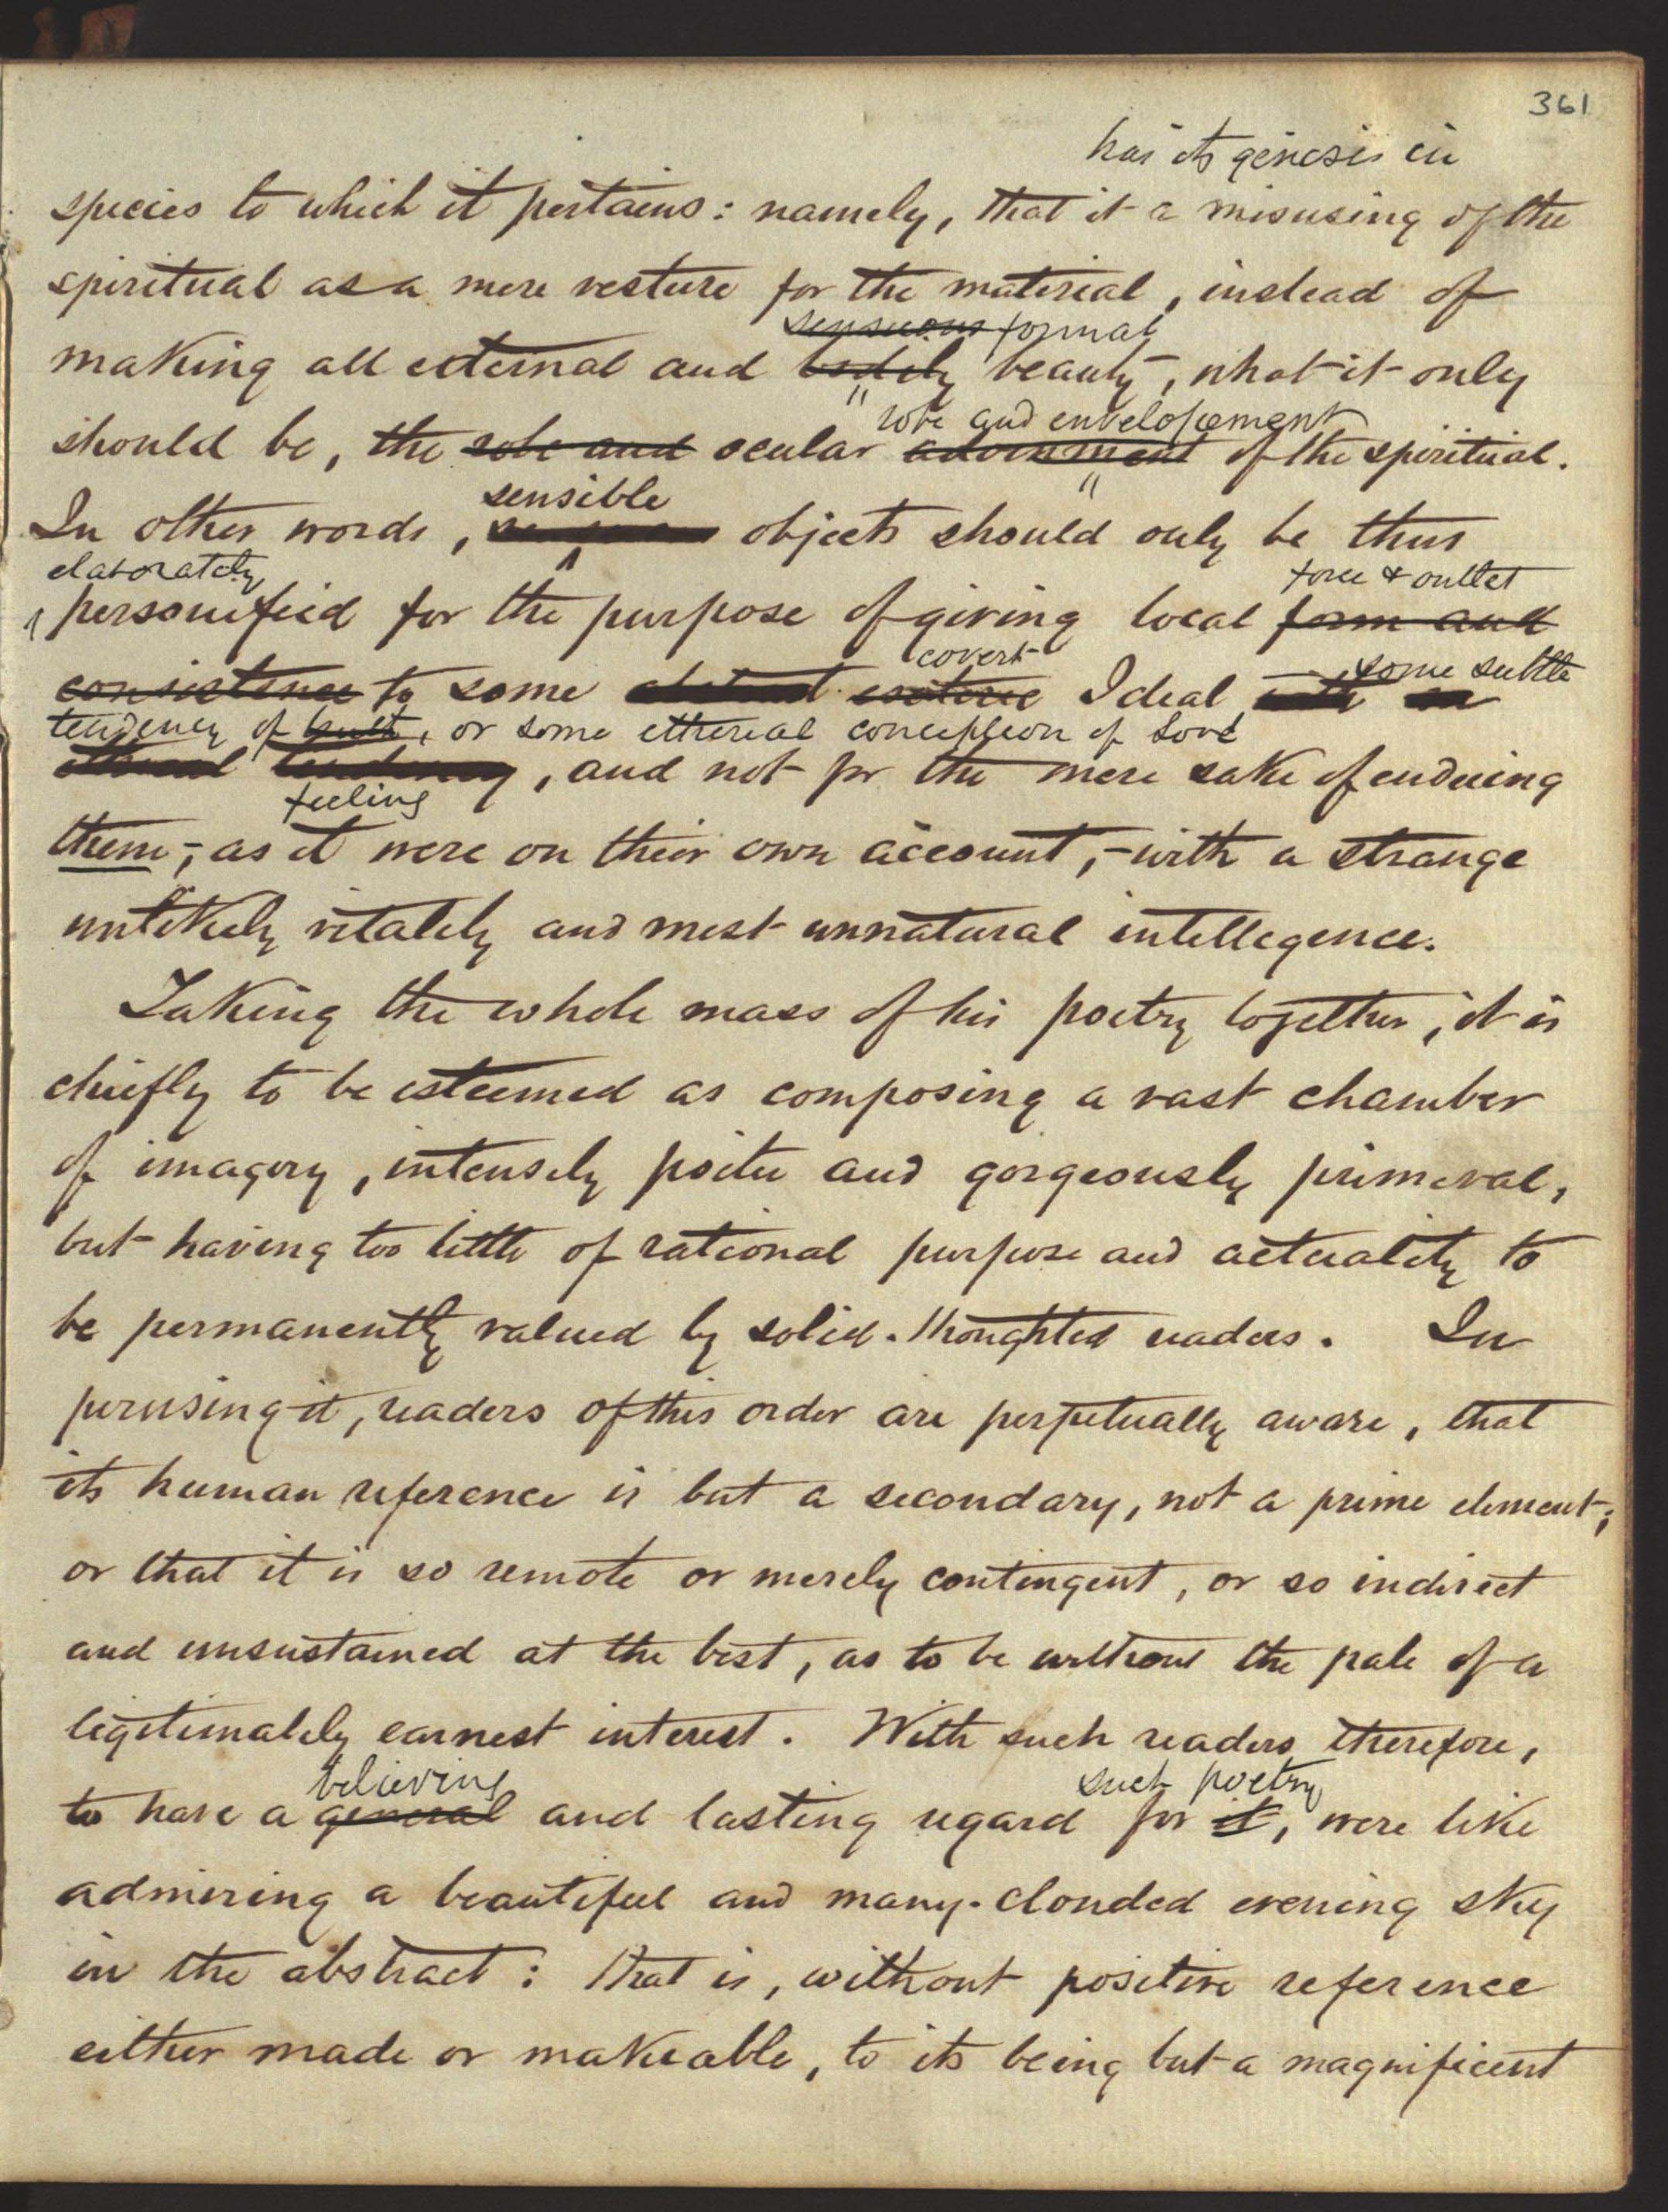 361
has its genesis in
species to which it pertains: namely, that it a misusing of the
spiritual as a mere vesture for the material, instead of
sensuous formal
making all external and bodily beauty, what it only
robe and envelopement
should be, the robe and ocular adornment of the spiritual.
sensible
In other words, objects should only be thus
elaborately force & outlet
personified for the purpose of giving local form and
covert some subtle
consistence to some esoteric Ideal
tendency of , or some ethereal conception of Love
tendency, and not for the mere sake of enduing
feeling
them,- as it were on their own account,- with a strange
unlikely vitality and most unnatural intellegence.
Taking the whole mass of his poetry together, it is
chiefly to be esteemed as composing a vast chamber
of imagery, intensely poetic and gorgeously primeval,
but having too little of rational purpose and actuality to
be permanently valued by solid-thoughted readers. In
perusing it, readers of this order are perpetually aware, that
its human reference is but a secondary, not a prime element;
or that it is so remote or merely contingent, or so indirect
and unsustained at the best, as to be without the pale of a
legitimately earnest interest. With such readers therefore,
believing such poetry
to have a general and lasting regard for it, were like
admiring a beautiful and many-clouded evening sky
in the abstract: that is, without positive reference
either made or makeable, to its being but a magnificent